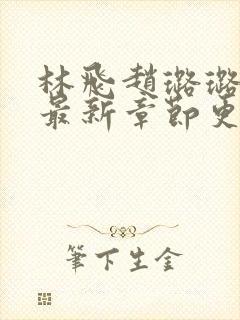 林飛趙璐璐
最新章節更
筆下生金